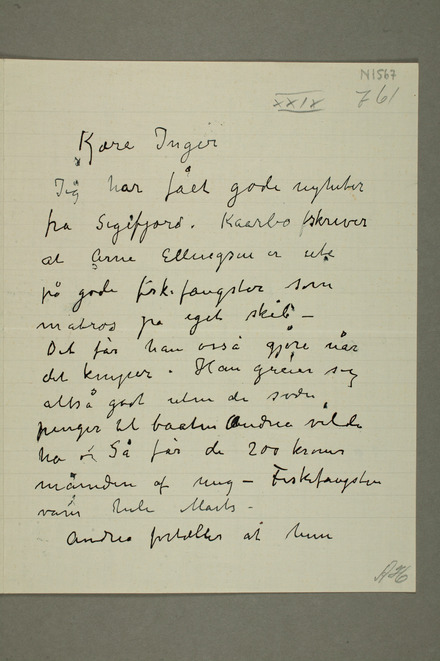 N1567
XXIX 761
Kære Inger
Jeg har fået gode nyheter
fra Sigifjord. Kaarbo skriver
at Arne Ellingsen er ute
på gode fiskefangster som
matros på eget skib –
Det får han også gjøre når
det kniper. Han greier sig
altså godt uten de
penger til baaten Andrea vilde
ha Så får de 200 kroner
månden af mig – Fiskefangsten
varer hele Marts –
Andrea fortæller at hun